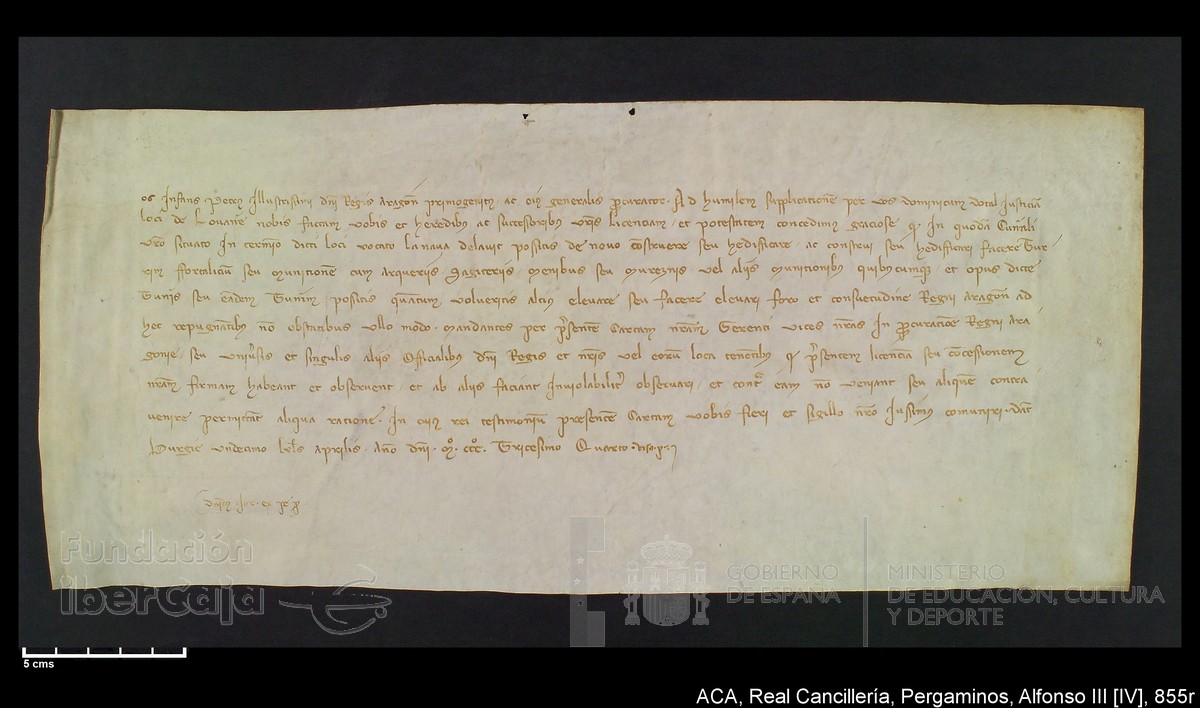 os Infans Petrus Illustrissimi dni Regis Aragon primogenitus ac eius generalis procurator. Ad humilem supplicationem per vos dominicum dotal Justicia
loci de nobis factam vobis et heredibus ac successoribus vris licenciam et potestatem concedimus graciose q in quodam Canali
vro situato in termino dicti loci vocato la nava positis de novo construere seu hedificare ac construi seu hedificari facere Tur
rim fortalicium seu municionem cum arqueriis sagiteriis menibus seu vel aliis municionibus quibuscumque et opus dicte
Turris seu eadem Turrim positis quantum volueritis alcius elevare seu facere elevari foro et consuetudine Regni Aragon ad
hec repugnantibus non obstantibus ullo modo. mandantes per presentem Cartam nram Gerenti vices nras in procuracione Regni Ara
gonie seu universis et singulis aliis officialibus dni Regis et nris vel eorum loca tenentibus q presentem licencia seu concessionem
nram firmam habeant et observent et ab aliis faciant inviolabiliter observari et contra eam non veniant seu aliquem contra
venire permittant aliqua racione. In cuius rei testimonium presentem Cartam vobis fieri et sigillo nro jussimus comuniri. dat
undecimo kls aprilis. Ano dni. Mo. CCCo. Tricesimo Quarto.
Fundación
iberCaja
GOBIERNO
DE ESPAÑA
MINISTERIO
DE EDUCACIÓN, CULTURA
Y DEPORTE
5 cms
ACA, Real Cancillería, Pergaminos, Alfonso III [IV], 855r